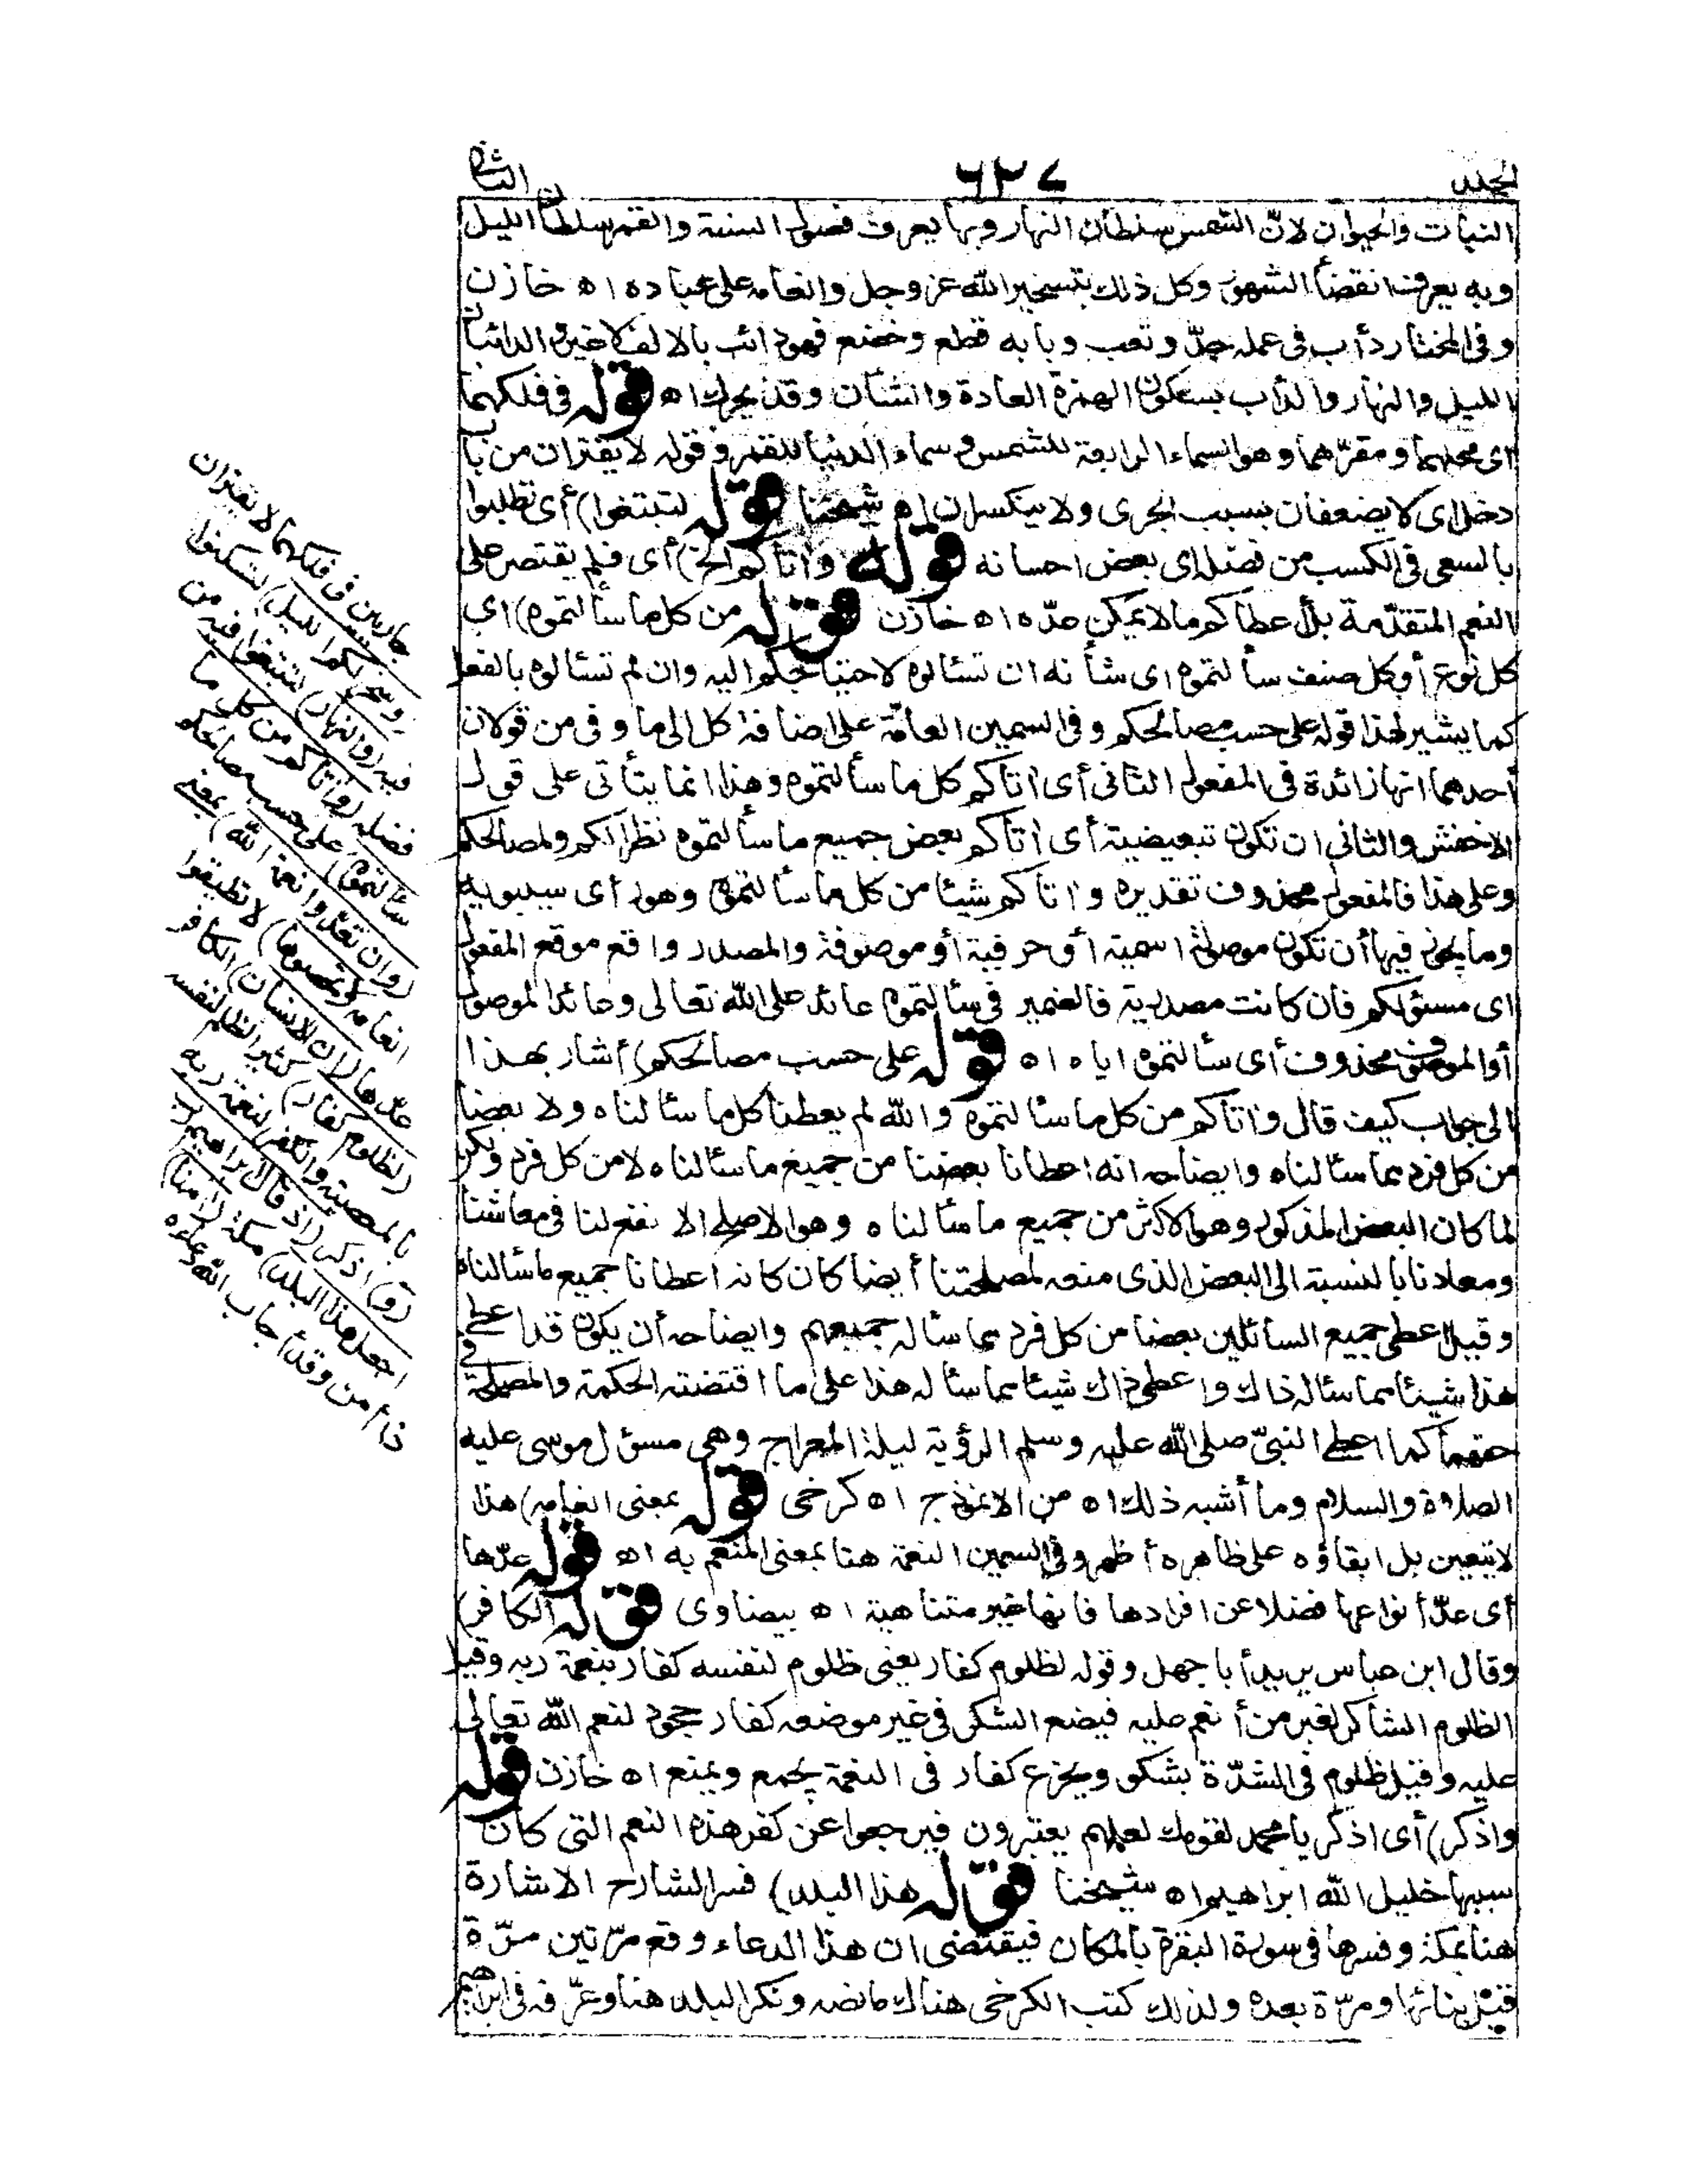 المجلد
٦٣٧
الثانى
النبات والحيوان لانّ الشمس سلطان النهار وبها يعرف فصول السنة والقمر سلطان الليل
وبه يعرف انقضأ الشهور وكل ذلك بتسخير الله عز وجل وانعامه على عباده اه خازن
وفى المختار دأب فى عمله جدّ وتعب وبابه قطع وخضع فهو دائب بالالف لا غير والدائبان
الليل والنهار والدأب بسكون الهمزة العادة والشأن وقد يحرك اه قوله فى فلكهما
اى محلهما ومقرّهما وهو السماء الرابعة للشمس وسماء الدنيا للقمر وقوله لا يفتران من باب
دخل اى لا يضعفان بسبب الجرى ولا ينكسران اه شيخنا قوله لتبتغوا) أى تطلبوا
بالسعى فى الكسب من فضله اى بعض احسانه قوله وآتاكم الخ) أى فلم يقتصر على
النعم المتقدّمة بل أعطاكم مالا يمكن عدّه اه خازن قوله من كل ما سألتموه) اى
كل نوع أو كل صنف سألتموه اى شأنه ان تسئالوه لاحتياجكم اليه وان لم تسئالوه بالفعل
كما يشير لهذا قوله على حسب مصالحكم وفى السمين العامّة على اضافة كل الى ما وفى من قولان
أحدهما انها زائدة فى المفعول الثانى أى آتاكم كل ما سألتموه وهذا انما يتأتى على قول
الاخفش والثانى ان تكون تبعيضية أى آتاكم بعض جميع ما سألتموه نظرا لكم ولمصالحكم
وعلى هذا فالمفعول محذوف تقديره وآتاكم شيئا من كل ما سألتموه وهو رأى سيبويه
وما يجوز فيها أن تكون موصولة اسمية أو حرفية أو موصوفة والمصدر واقع موقع المفعول
اى مسئولكم فان كانت مصدرية فالضمير فى سئالتموه عائد على الله تعالى وعائد الموصول
أو الموصوف محذوف أى سألتموه اياه اه قوله على حسب مصالحكم) أشار بهذا
الى جواب كيف قال وآتاكم من كل ما سئالتموه والله لم يعطنا كل ما سئالناه ولا بعضا
من كل فرد مما سئالناه وايضاحه انه اعطانا بعضنا من جميع ما سئالناه لا من كل فرد ولكن
لما كان البعض المذكور وهو الاكثر من جميع ما سئالناه وهو الاصلح الا نفع لنا فى معاشنا
ومعادنا بالنسبة الى البعض الذى منعه لمصلحتنا أيضا كان كانه اعطانا جميع ما سئالناه
وقيل اعطى جميع السائلين بعضا من كل فرد مما سئاله جميعهم وايضاحه أن يكون قد اعطى
هذا شيئا مما سئاله ذاك واعطى ذاك شيئا مما سئاله هذا على ما اقتضته الحكمة والمصلحة فى
حقهما كما اعطى النبىّ صلى الله عليه وسلم الرؤية ليلة المعراج وهى مسؤل موسى عليه
الصلاة والسلام وما أشبه ذلك اه من الانموذج اه كرخى قوله بمعنى انعامه) هذا
لا يتعين بل ابقاؤه على ظاهره أظهر وفى السمين النعمة هنا بمعنى المنعم به اه قوله عدّها
أى عدّ أنواعها فضلا عن افرادها فانها غير متناهية اه بيضاوى قوله الكافر)
وقال ابن عباس يريد أبا جهل وقوله لظلوم كفار يعنى ظلوم لنفسه كفار بنعمة ربه وقيل
الظلوم الشاكر لغير من أنعم عليه فيضع الشكر فى غير موضعه كفار جحود لنعم الله تعالى
عليه وقيل ظلوم فى الشدّة يشكو ويجزع كفار فى النعمة يجمع ويمنع اه خازن قوله
واذكر) أى اذكر يا محمد لقومك لعلهم يعتبرون فيرجعوا عن كفر هذه النعم التى كان
سببها خليل الله ابراهيم اه شيخنا قوله هذا البلد) فسر الشارح الاشارة
هنا بمكة وفسرها فى سورة البقرة بالمكان فيقتضى ان هذا الدعاء وقع مرّتين مرّة
قبل بنائها ومرّة بعده ولذلك كتب الكرخى هناك ما نصه ونكر البلد هنا وعرّفه فى ابراهيم
جاريين فى فلكهما لا يفتران
(وسخر لكم الليل) لتسكنوا
فيه (والنهار) لتبتغوا فيه من
فضله (وآتاكم من كل ما
سئالتموه) على حسب مصالحكم
(وان تعدّوا نعمة الله) بمعنى
انعامه (لا تحصوها) لا تطيقوا
عدّها (ان الانسان) الكافر
(لظلوم كفار) كثير الظلم لنفسه
بالمعصية والكفر لنعمة ربه
(و) اذكر (اذ قال ابراهيم رب
اجعل هذا البلد) مكة (آمنا)
ذا أمن وقد أجاب الله دعاءه